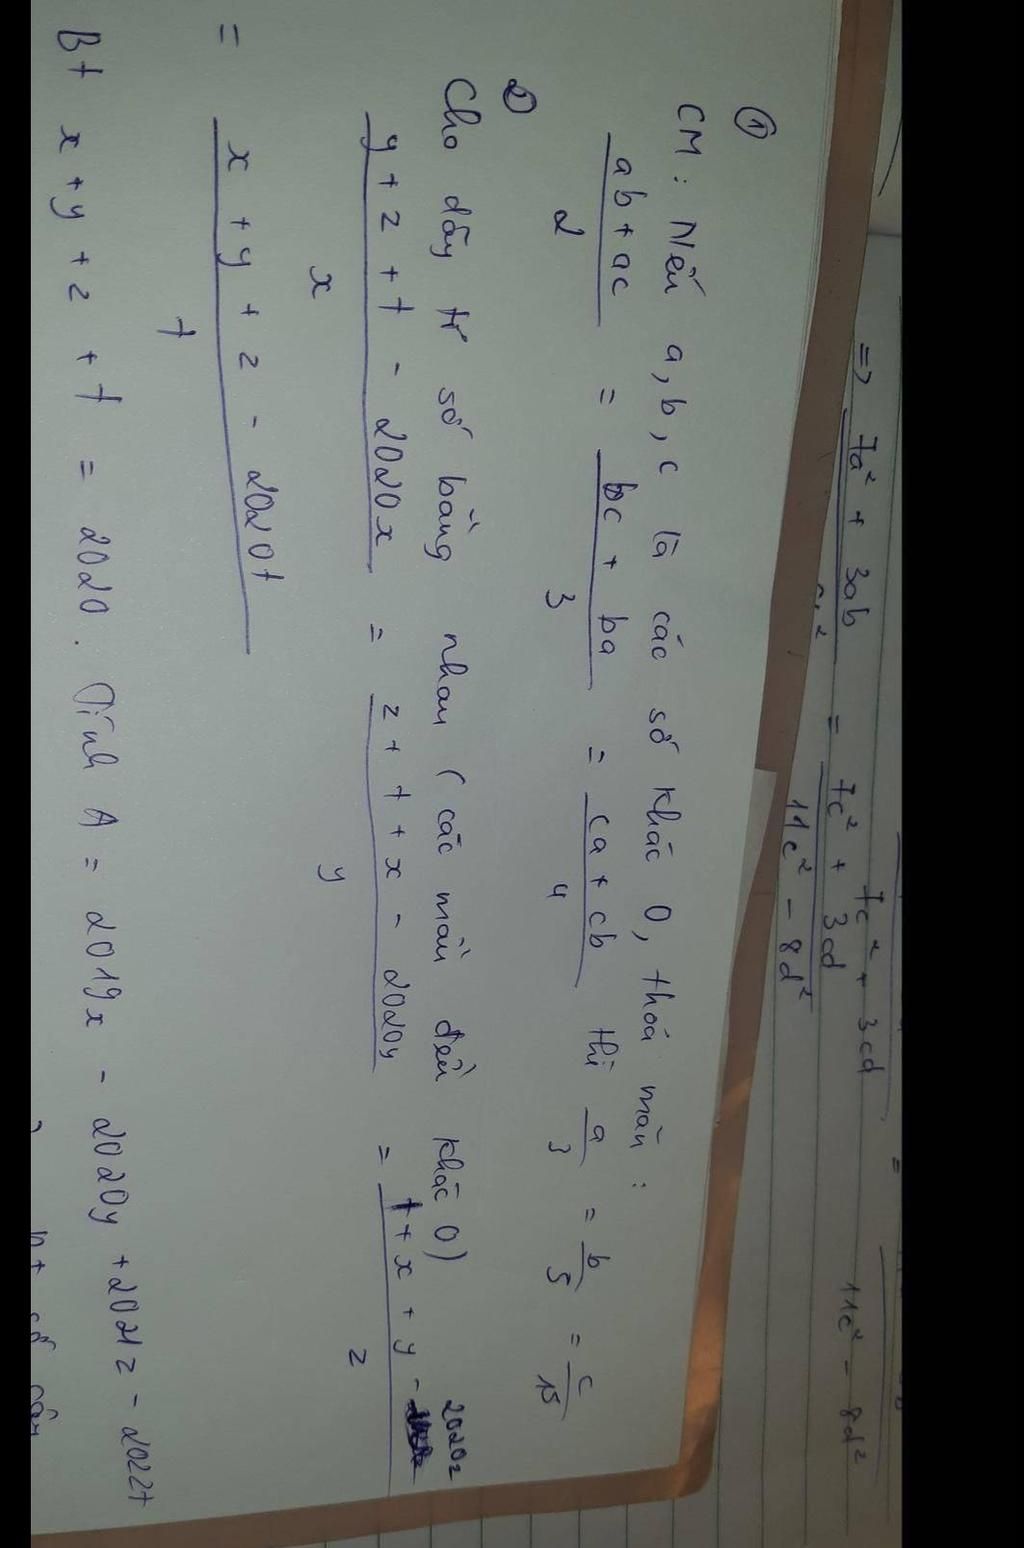 => 7a² + 3ab = 7c² + 3cd
11c² - 8d²
7c² + 3cd =
11c² - 8d²
①
CM: Nếu a, b, c là các số khác 0, thoả mãn :
ab + ac / 2 = bc + ba / 3 = ca + cb / 4 thì a/3 = b/5 = c/15
②
Cho dãy tỉ số bằng nhau (các mẫu đều khác 0)
y + z + t - 2020x / x = z + t + x - 2020y / y = t + x + y - 2020z / z
= x + y + z - 2020t / t
Bt x + y + z + t = 2020. Tính A = 2019x - 2020y + 2021z - 2022t